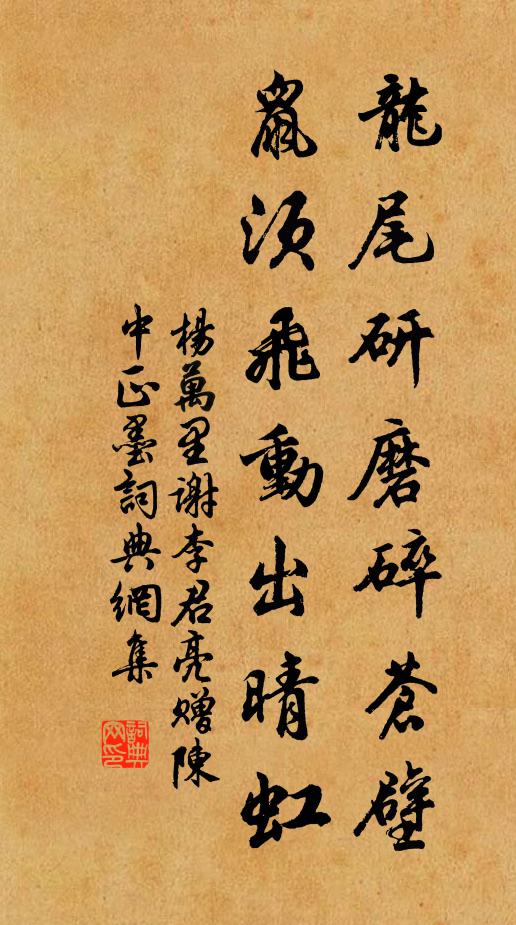 龍尾研磨碎蒼璧
鼠須飛動出晴虹
楊萬里謝李君亮贈陳
中正墨詞典網集
詞典网印